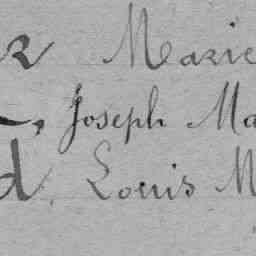 r Marie
, Joseph Ma
d, Louis M